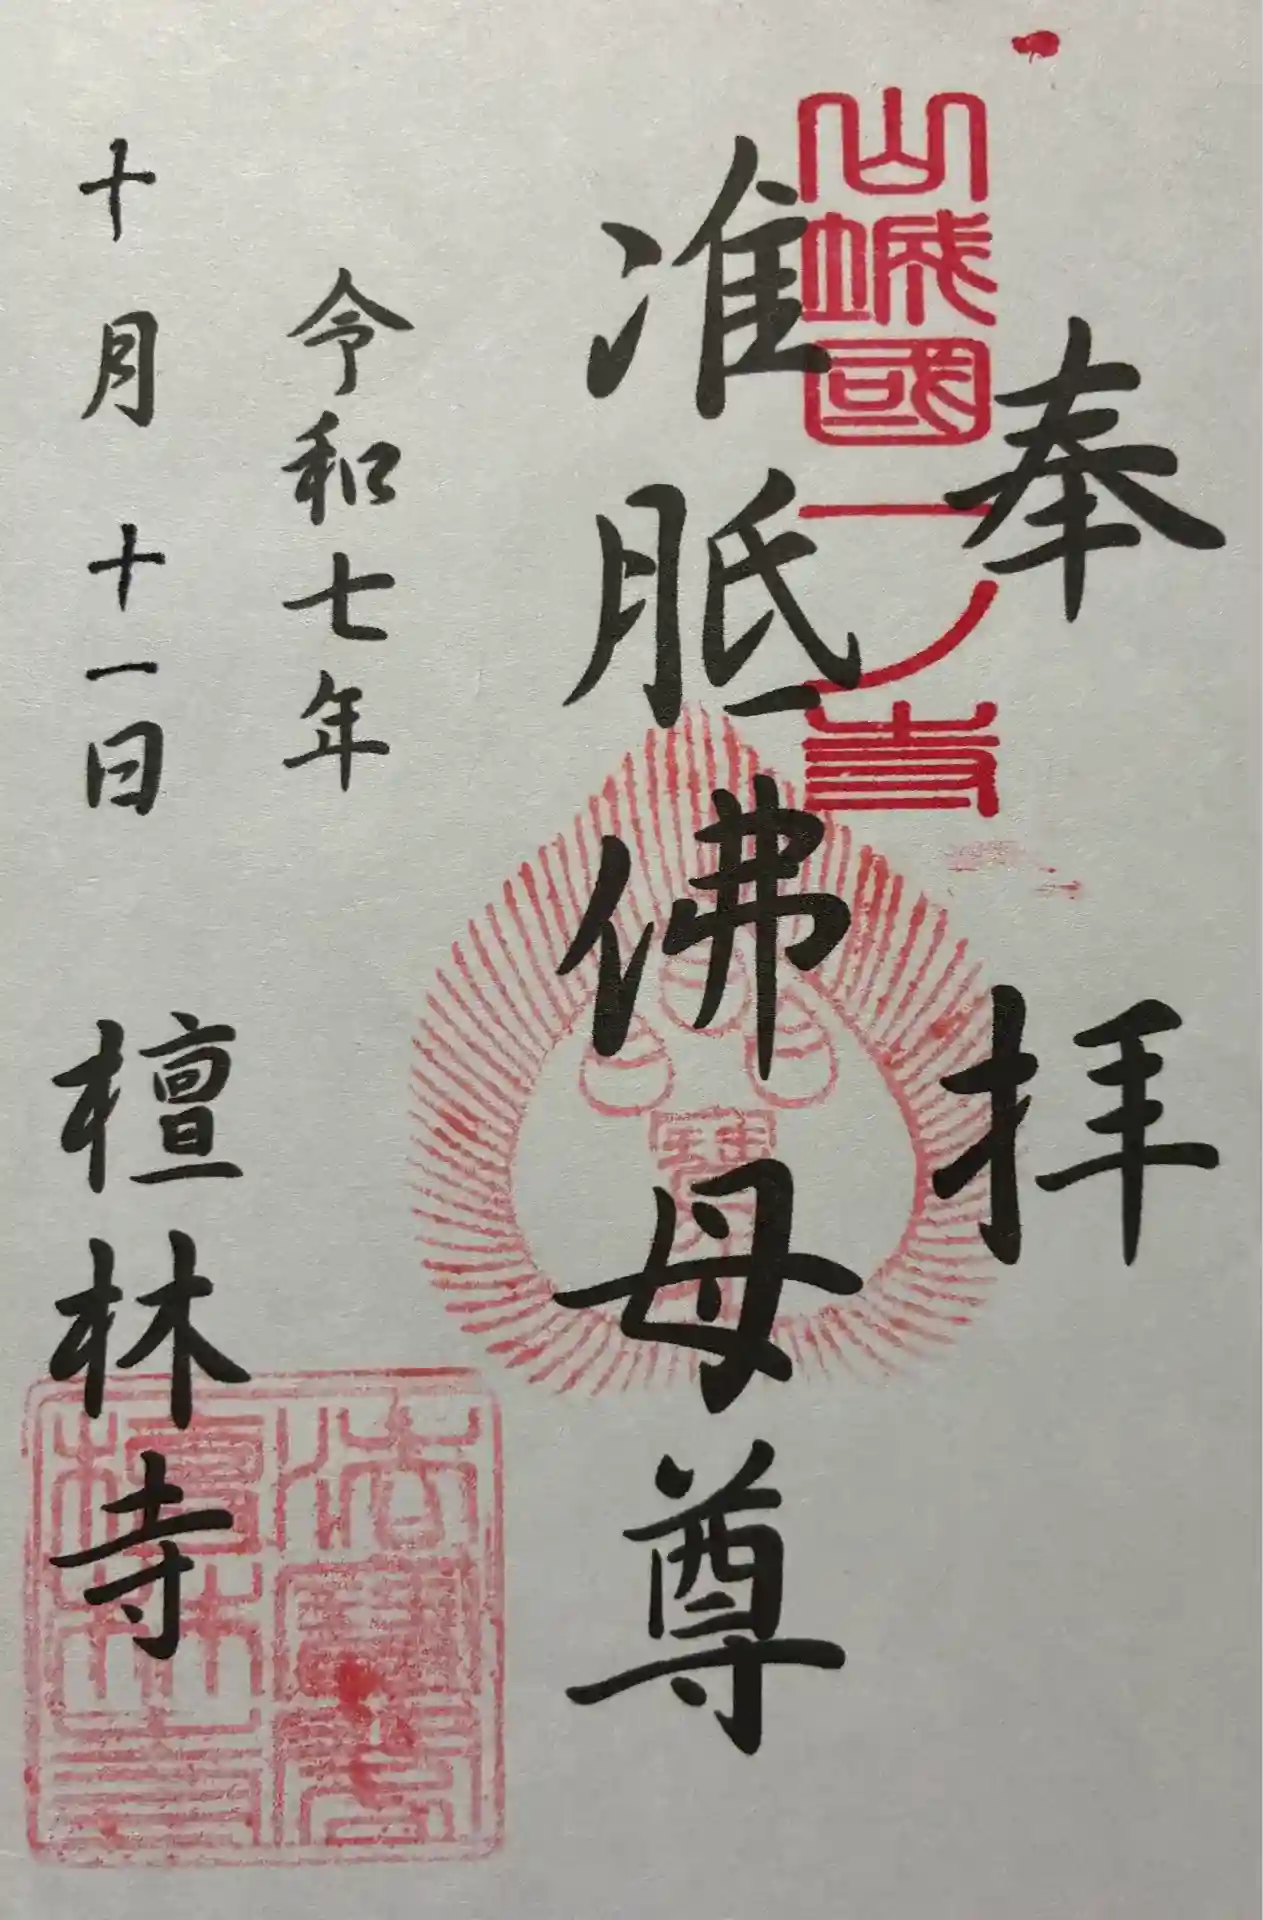 奉拝
山城國一ノ寺
准胝佛母尊
令和七年
十月十一日
檀林寺
檀林寺